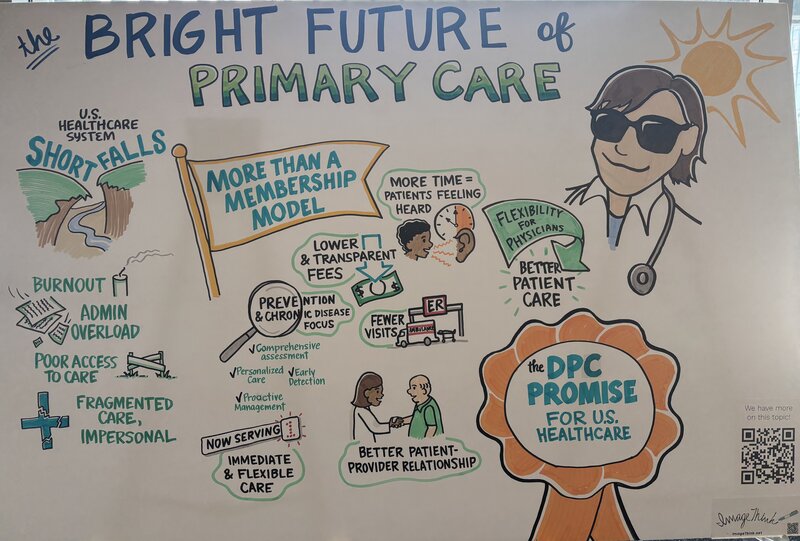 the BRIGHT FUTURE of
PRIMARY CARE
U.S.
HEALTHCARE
SYSTEM
SHORTFALLS
BURNOUT
ADMIN
OVERLOAD
POOR ACCESS
TO CARE
FRAGMENTED
CARE,
IMPERSONAL
MORE THAN A
MEMBERSHIP
MODEL
LOWER
& TRANSPARENT
FEES
$ $
PREVENTION
& CHRONIC DISEASE
FOCUS
✓Comprehensive
assessment
✓Personalized
Care
✓Early
Detection
✓Proactive
Management
NOW SERVING 1
IMMEDIATE
& FLEXIBLE
CARE
MORE TIME =
PATIENTS FEELING
HEARD
FEWER
VISITS
ER
AMBULANCE
BETTER PATIENT-
PROVIDER RELATIONSHIP
FLEXIBILITY
FOR
PHYSICIANS
BETTER
PATIENT
CARE
the DPC
PROMISE
FOR U.S.
HEALTHCARE
We have more
on this topic!
ImageThink
imagethink.net